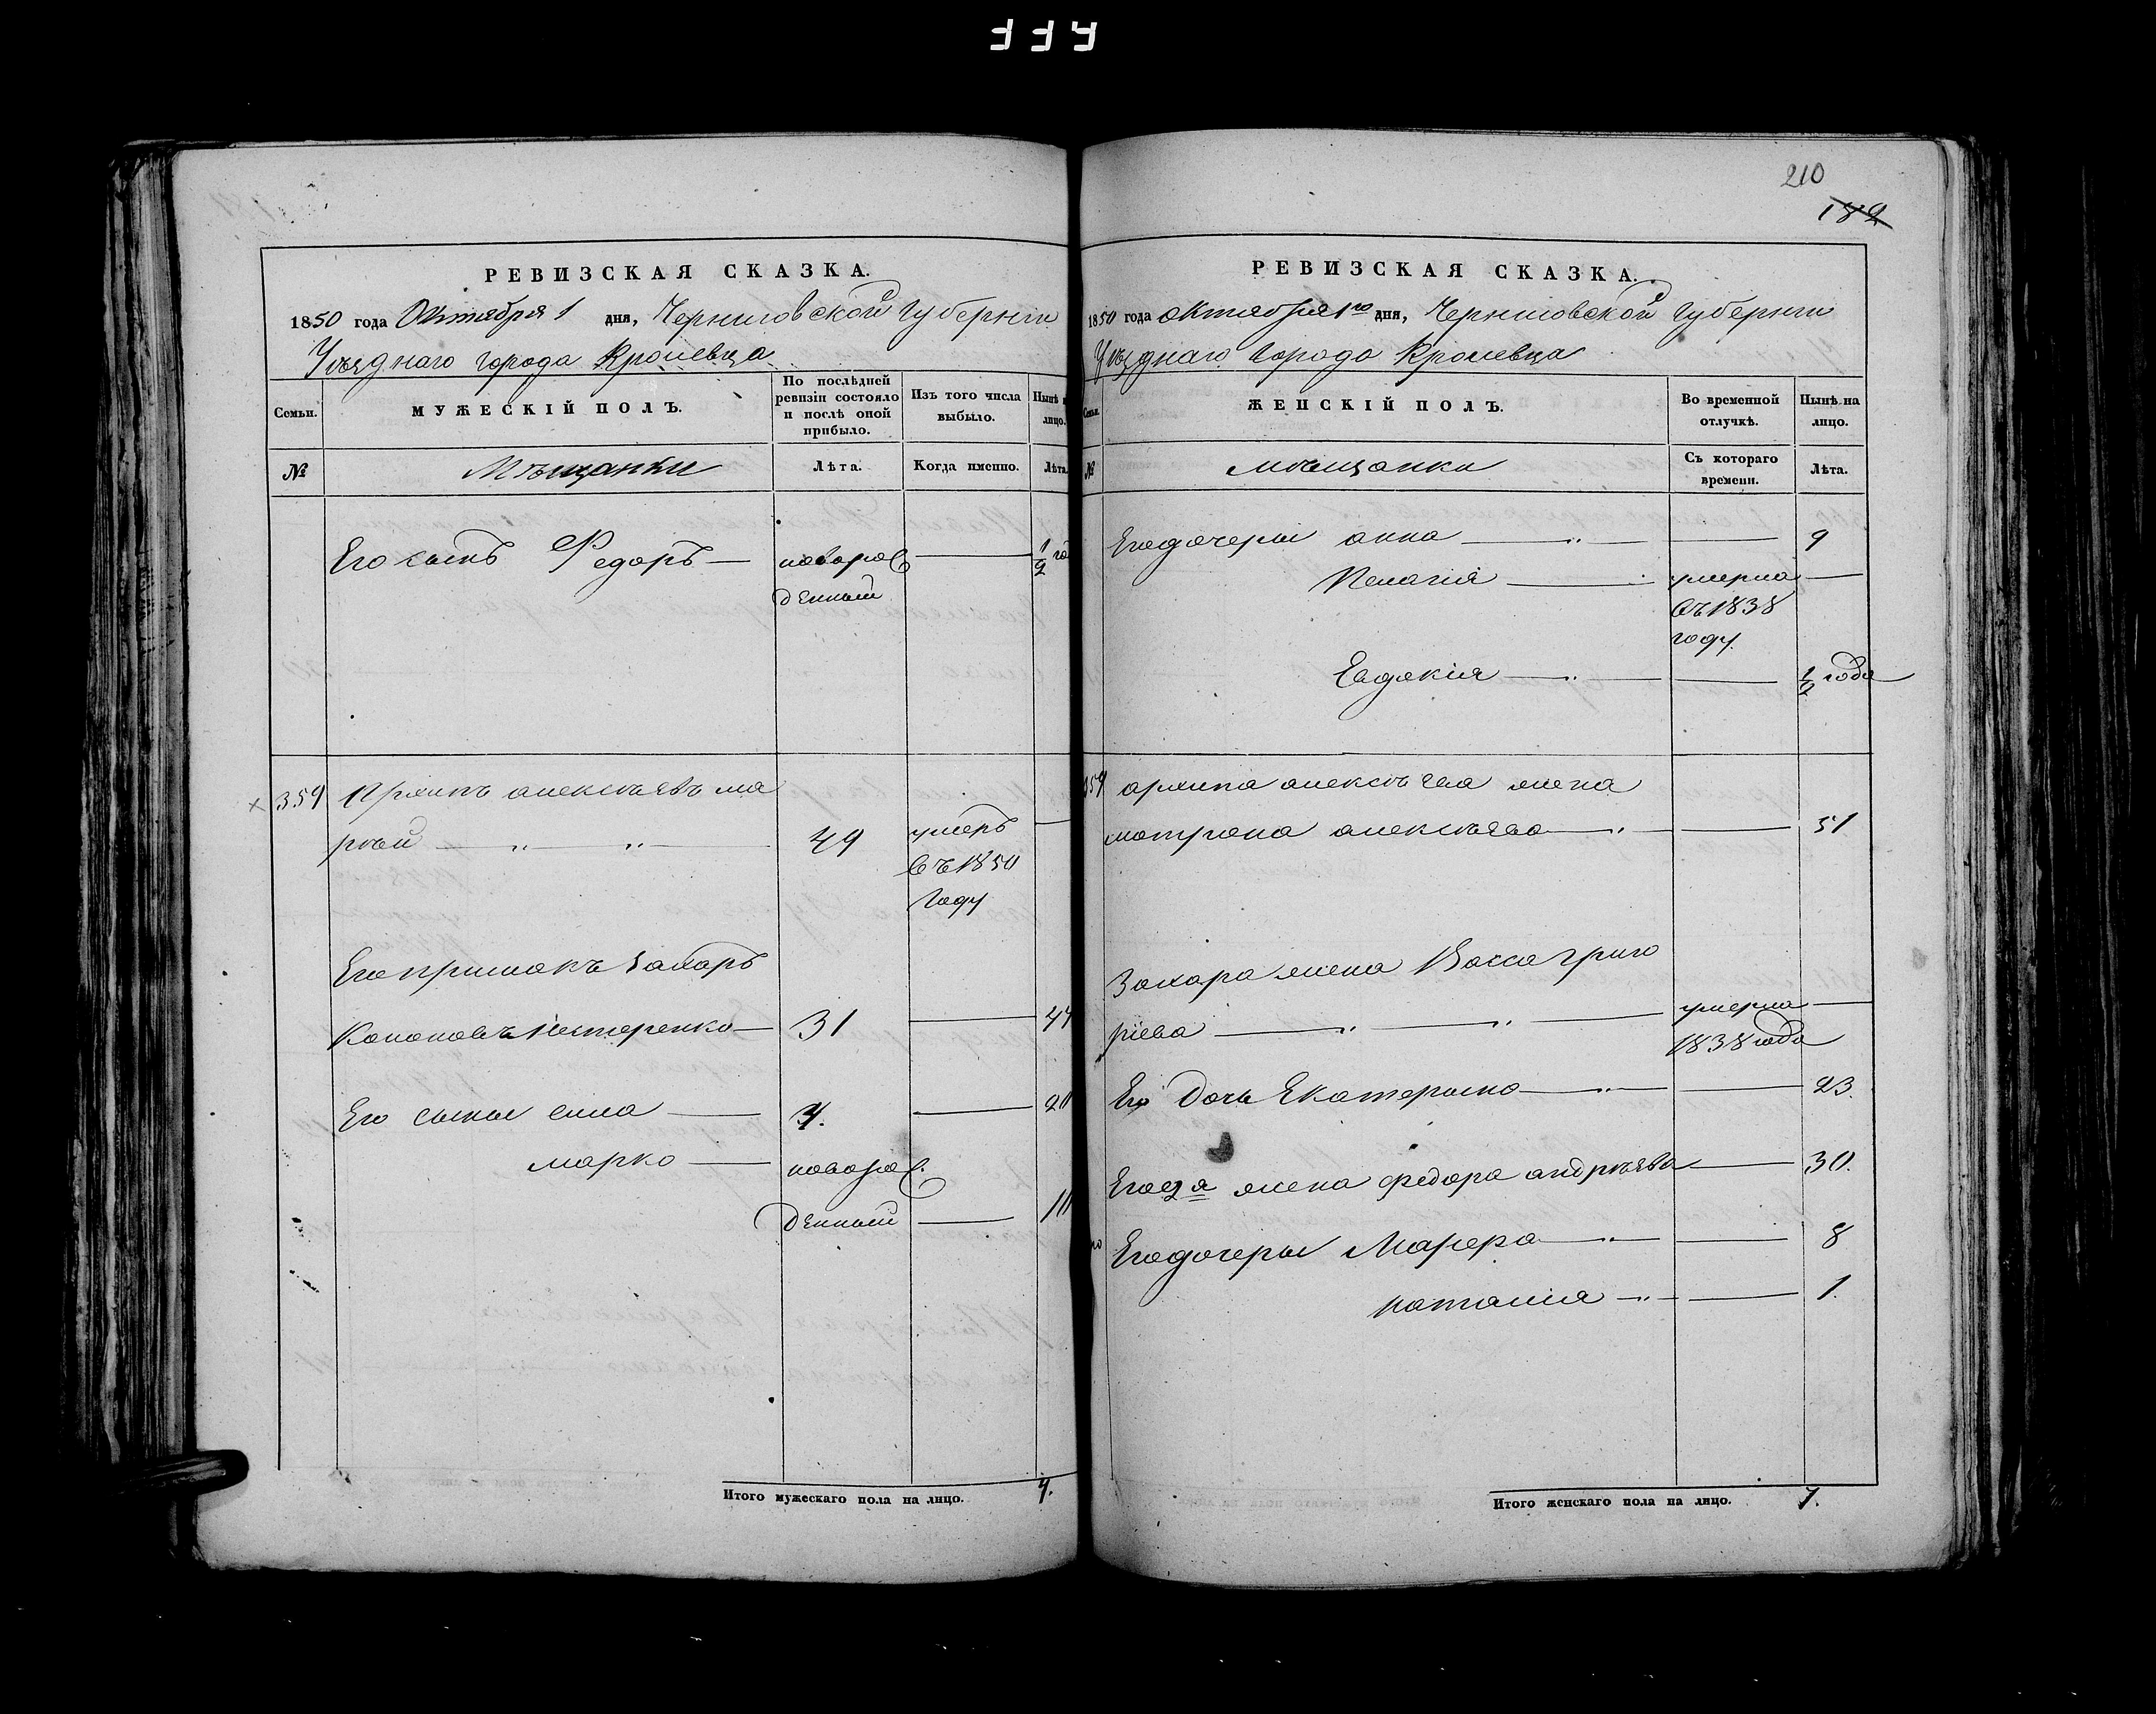 РЕВИЗСКАЯ СКАЗКА.
1850 года Октября 1 дня, Черниговской Губернiи
Уѣзднаго города Кролевца
Семьи.
МУЖЕСКІЙ ПОЛЪ.
По послѣдней ревизіи состояло и послѣ оной прибыло.
Изъ того числа выбыло.
Нынѣ на лицо.
№
Мѣщанѣ
Лѣта.
Когда именно.
Лѣта.
Его сынъ Федоръ — новорож — 1/2 го
денный
359 Архипъ алексѣевъ ма
рѣй — " — " — 49 умеръ —
въ 1850
Году
Его примакъ Захаръ
Кононовъ Нестеренко — 31 — 44
Его сыны сила — 7. — 20
марко —новорож
денный — 10
Итого мужескаго пола на лицо. 4.
210
182
РЕВИЗСКАЯ СКАЗКА.
1850 года октября 1го дня, Черниговской Губернiи
Уѣзднаго Города Кролевца
Семьи.
ЖЕНСКІЙ ПОЛЪ.
Во временной отлучкѣ.
Нынѣ на лицо.
№
мѣщанки
Съ котораго времени.
Лѣта.
Его дочери анна — " — — 9
Пелагія — умерла —
въ 1838
году.
Евдокія — " — — 1/2 года
359 архипа алексѣева жена
матрона алексѣева — " — — 51
Захара жена Васса григо
ріева — " — " — умерла —
1838 года
Его дочь Екатерина — " — — 23.
Его 2я жена федора андрѣева — 30.
Его дочеры Марфа — " — — 8
наталія — " — — 1.
Итого женскаго пола на лицо. 7.